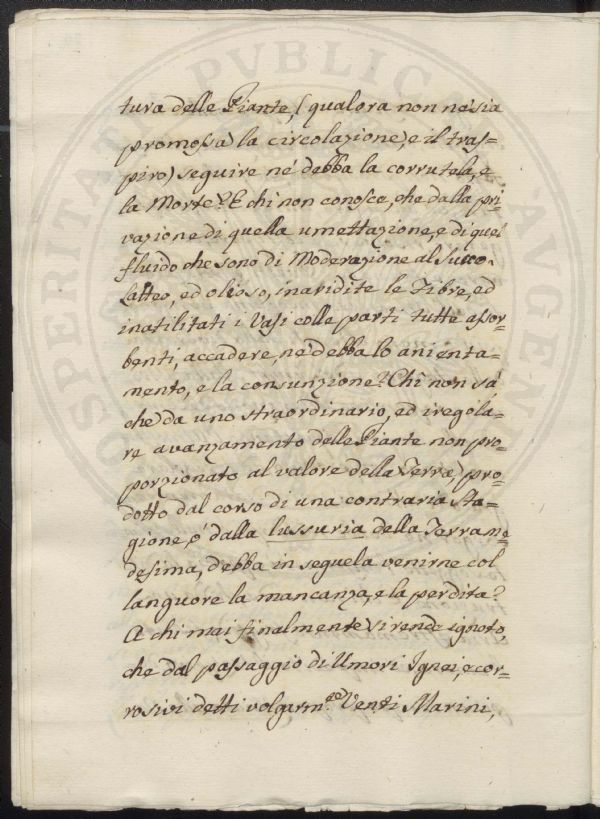 tura delle Piante, (qualora non ne sia
promossa la circolazione, e il tras=
piro) seguire né debba la corrutela, e
la Morte? E chi non conosce, che dalla pri=
vazione di quella umettazione, e di quel
fluido che sono di Moderazione al Succo
Latteo, ed olioso, inaridite le Fibre, ed
inatilitati i Vasi colle parti tutte assor=
benti, accadere, né debba lo anienta=
mento, e la consunzione? Chi non sá
che da uno straordinario, ed iregola=
re avanzamento delle Piante non pro=
porzionato al valore della Terra pro=
dotto dal corso di una contraria Sta=
gione, ó dalla lussuria della Terra me=
desima, debba in seguela venirne col
languore la mancanza, e la perdita?
A chi mai finalmente si rende ignoto,
che dal passaggio di Umori Ignei, e cor=
rosivi detti volgarm.te Venti Marini,
PROSPERITATI PUBLICAE AUGEN